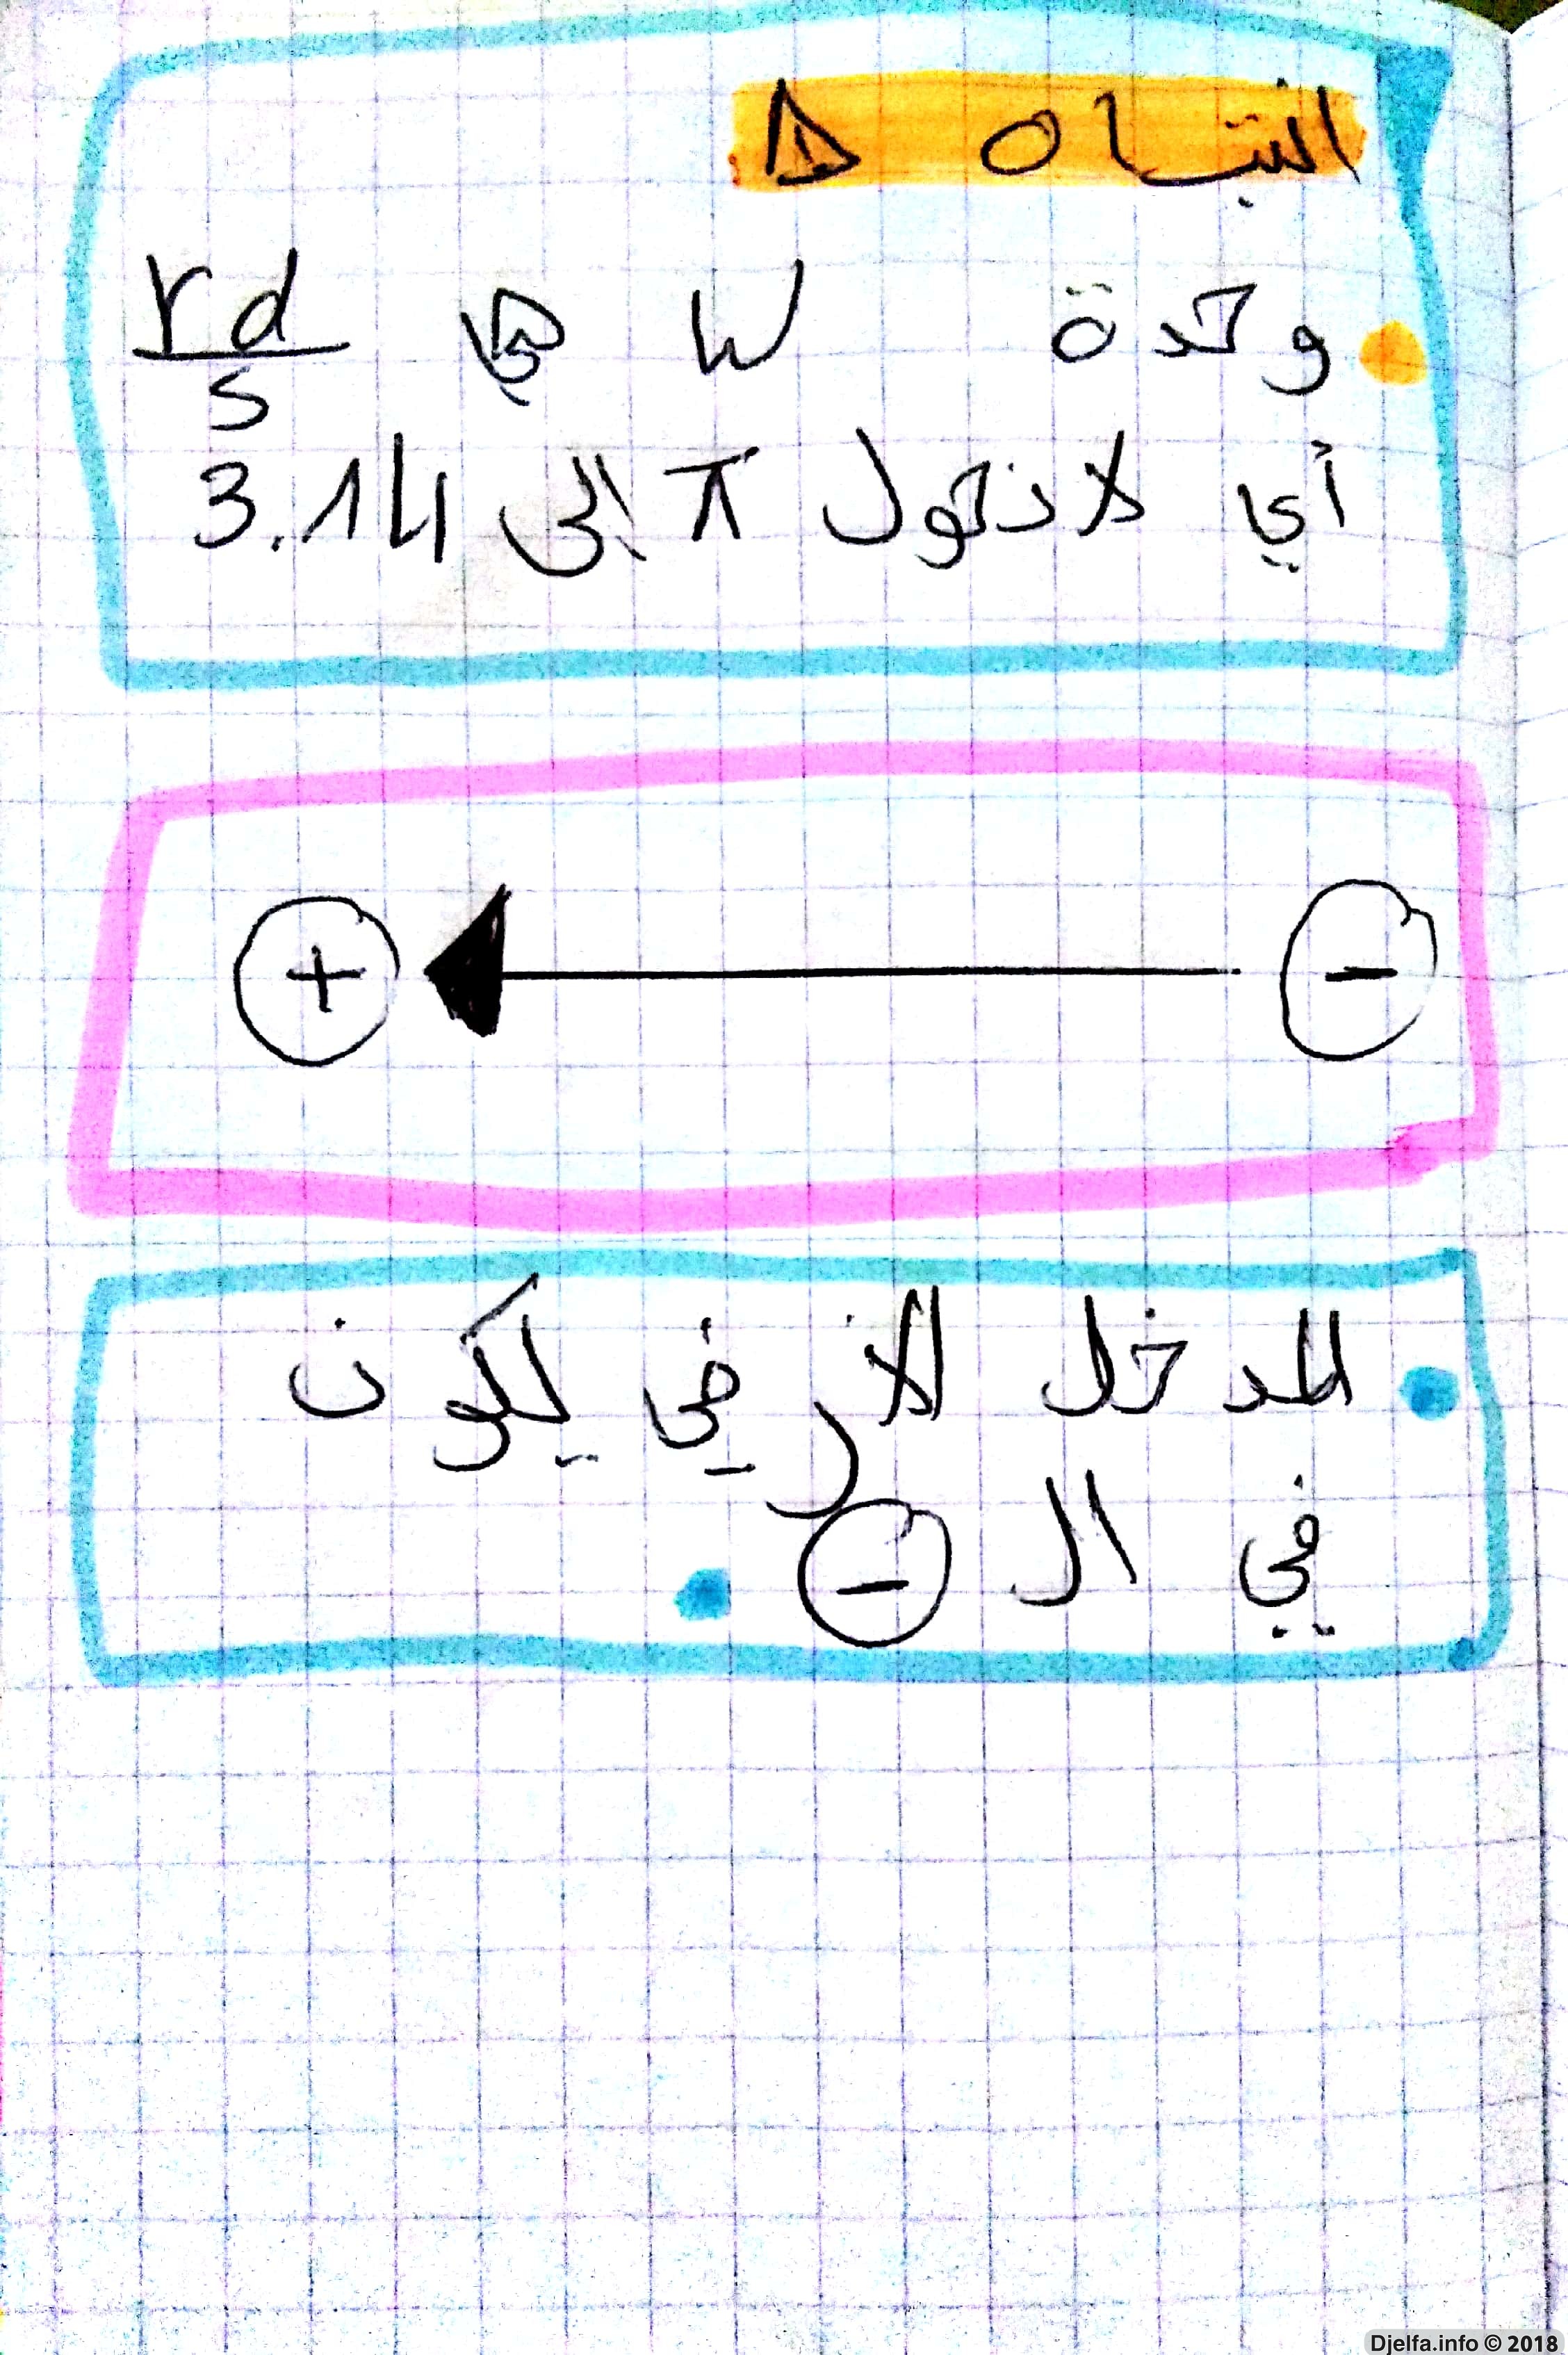 انتباه
وحدة w هي rd/s
أي لا نحول π إلى 3.14
- +
المدخل الأرضي يكون
في ال -
Djelfa.info © 2018